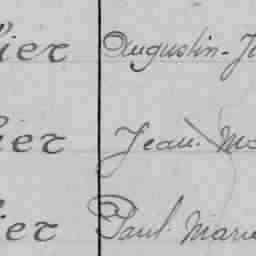 ier Augustin-J
ier Jean Ma
ier Paul Marie